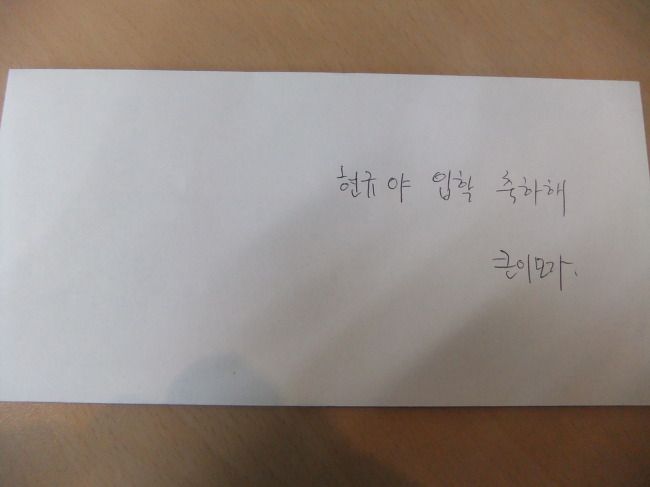 현규야 입학 축하해
큰이모가.